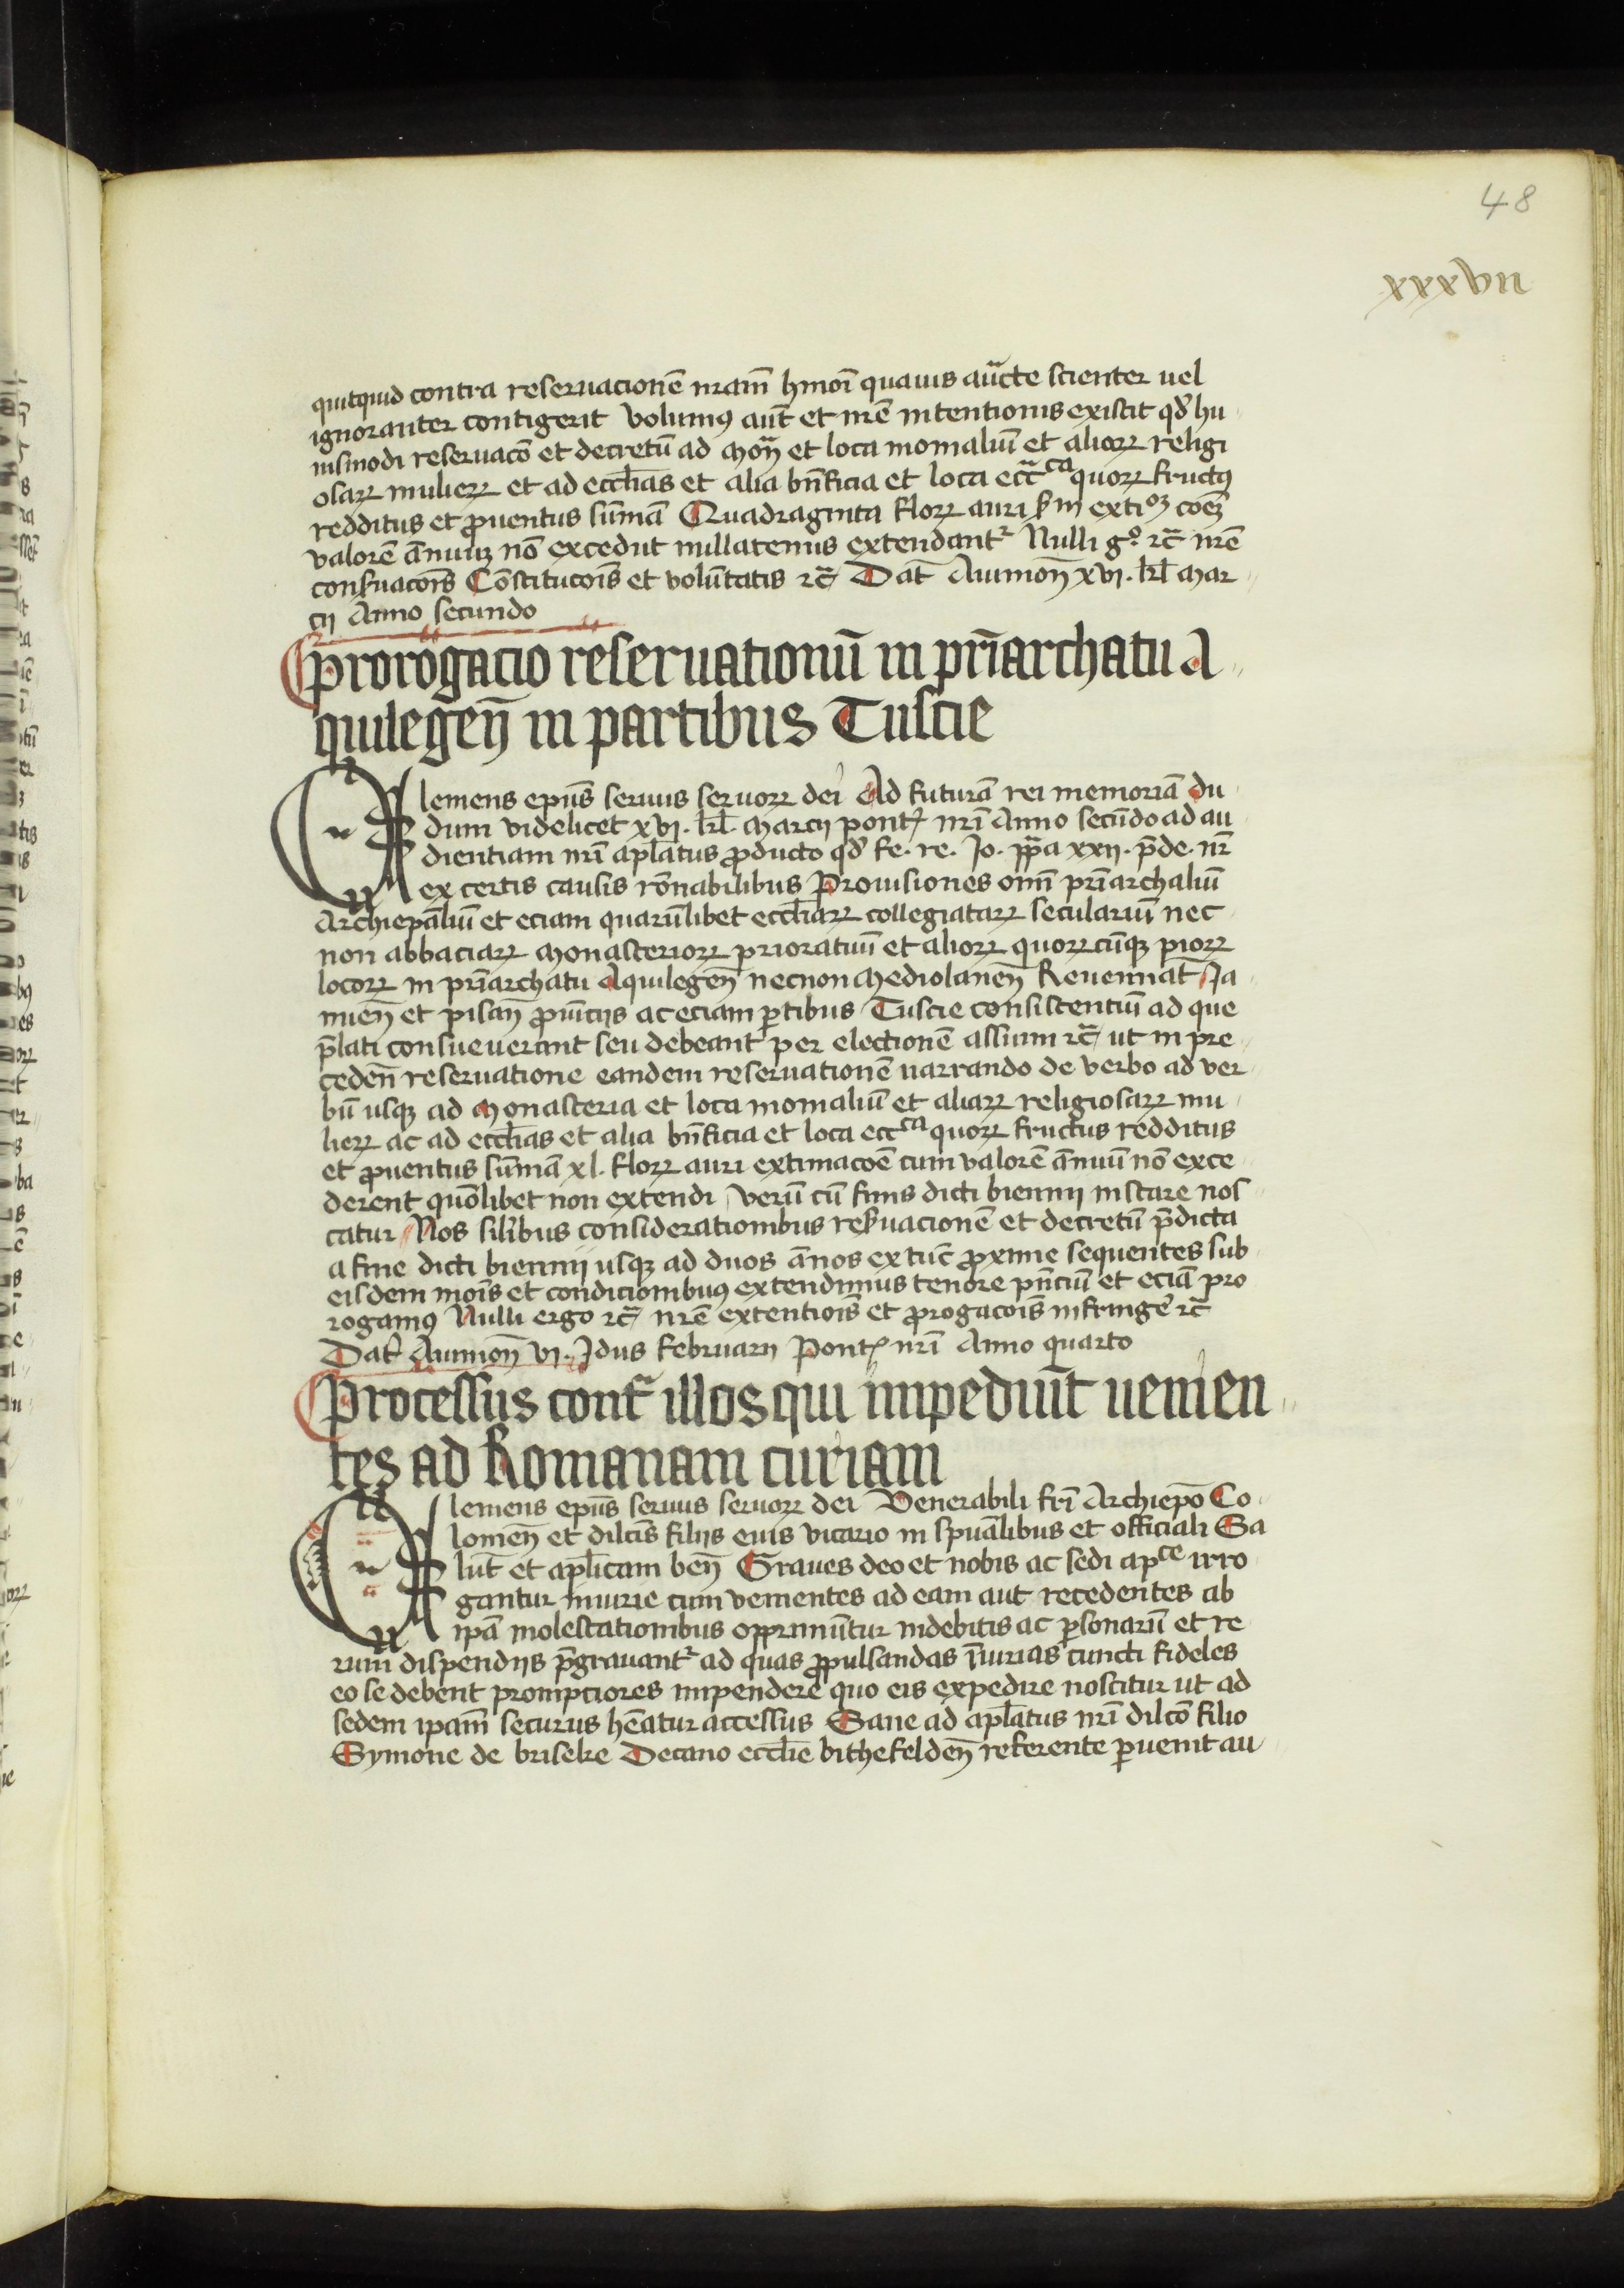 48
xxxvii
quitquid contra reseruacionē nram̄ hmoī quauis auc̄te scienter uel
ignoranter contigerit Volumꝰ aut̄ et nrē intentionis existit qd̄ hu
iusmodi reseruacō et decretū ad Mon̄ et loca monialiū et alioꝝ religi
osaꝝ mulieꝝ et ad eccl̄ias et alia bn̄ficia et loca ecc̄ca quoꝝ fructꝰ
redditus et ꝓuentus sūmā Quadraginta floꝝ auri ẜm exti⁰ꝫ coēꝫ
valorē ānuuꝫ nō excedūt nullatenus extendant᷑ Nulli g⁰ ⁊c̄ nrē
conẜuacōis Cōstitucōis et volūtatis ⁊c̄ Dat̄ Auinion̄ xvj. kl̄. Mar
cij Anno secundo
Prorogacio reseruationū in pr̄iarchatu A
quilegen̄ in partibus Tuscie
Clemens ep̄us seruus seruoꝝ dei Ad futurā rei memoriā Du
dum videlicet xvj. kl̄. Marcij pontꝭ nrī Anno secūdo ad au
dientiam nrī apl̄atus ꝓducto qd̄ fe. re. Jo. pp̄a xxij. p̄de. nr̄
ex certis causis rōnabilibus Prouisiones omī pr̄iarchaliū
Archiep̄aliū et eciam quarūlibet eccl̄iaꝝ collegiataꝝ seculariū nec
non abbaciaꝝ Monasterioꝝ prioratuū et alioꝝ quoꝝcūqꝫ pioꝝ
locoꝝ in pr̄iarchatu Aquilegen̄ necnon Mediolanen̄ Reuennat̄ Ja
nuen̄ et pisan̄ ꝓuīcijs ac eciam ꝑtibus Tuscie consistentiū ad que
p̄lati consueuerant seu debeant per electionē assumi ⁊c̄ ut in pre
ceden̄ reseruatione eandem reseruationē narrando de verbo ad ver
bū usqꝫ ad Monasteria et loca monialiū et aliaꝝ religiosaꝝ mu
lieꝝ ac ad eccl̄ias et alia bn̄ficia et loca ecc̄ca quoꝝ fructus redditus
et ꝓuentus sūmā xl. floꝝ auri extimacōē cum valorē ānuū nō exce
derent quōlibet non extendi Verū cū finis dicti biennij instare nos
catur Nos sil̄ibus considerationibus reẜuacionē et decretū p̄dicta
a fine dicti biennij usqꝫ ad duos ānos ex tūc ꝓxime sequentes sub
eisdem mōis et condicionibuꝰ extendimus tenore pn̄ciū et eciā pro
rogamꝰ Nulli ergo ⁊c̄ nrē extentiōis et ꝓrogacōis infringē ⁊c̄
Dat̄ Auinion̄ vj. Idus Februarij Pontꝭ nrī Anno quarto
Processus cont᷑ illos qui impediūt uenien
tes ad Romanam curiam
Clemens ep̄us seruus seruoꝝ dei Venerabili frī Archiep̄o Co
lonien̄ et dilc̄is filijs eius vicario in spūalibus et officiali Sa
lūt et apl̄icam ben̄ Graues deo et nobis ac sedi apce irro
gantur iniurie cum venientes ad eam aut recedentes ab
ipā molestationibus opprimūtur indebitis ac ꝑsonarū et re
rum dispendijs p̄grauant᷑ ad quas ꝓpulsandas īiurias cuncti fideles
eo se debent promptiores impendere quo eis expedire noscitur ut ad
sedem ipam̄ securus hēatur accessus Sane ad apl̄atus nrī dilc̄o filio
Symone de briseke Decano eccl̄ie bithefelden̄ referente ꝑuenit au